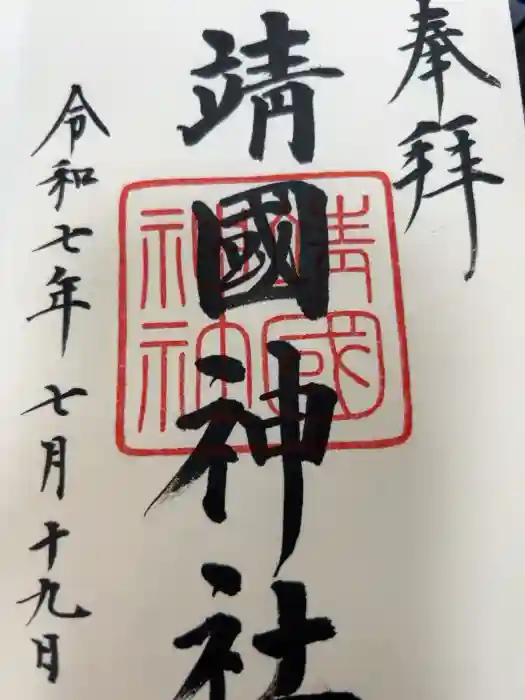 奉拝
靖國神社
靖國神社
令和七年七月十九日